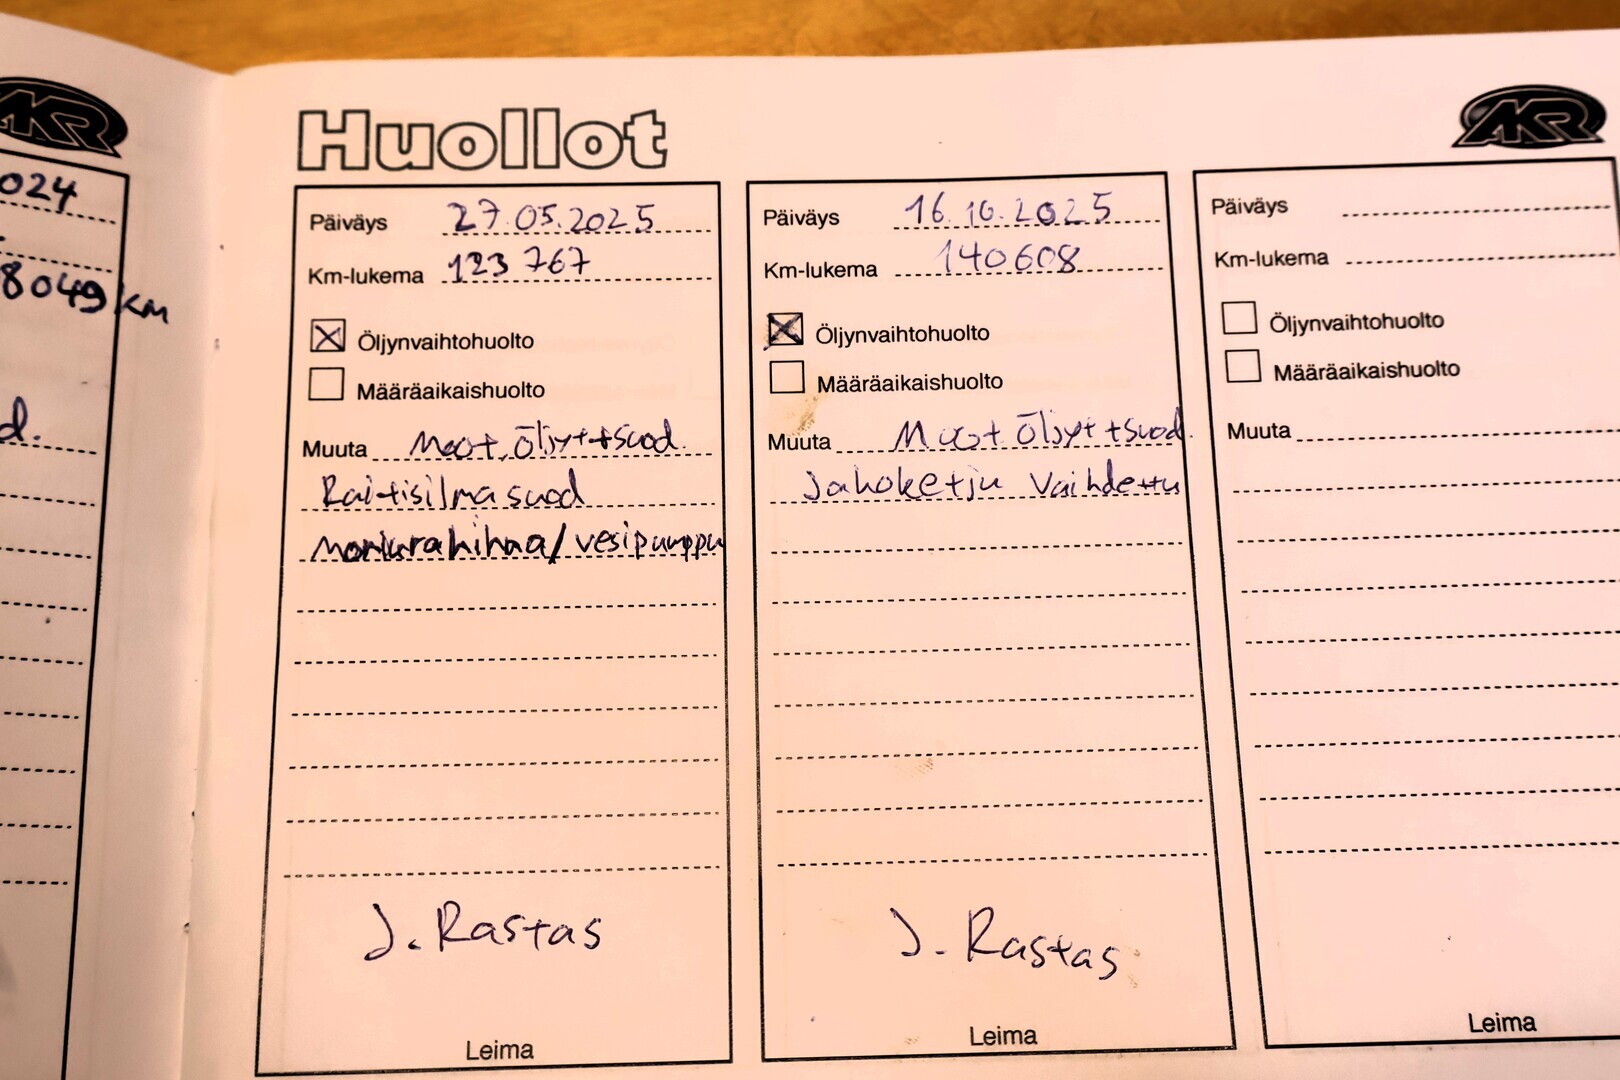 AKR
024
8049 km
d.
Huollot
AKR
Päiväys 27.05.2025
Km-lukema 123 767
Öljynvaihtohuolto
Määräaikaishuolto
Muuta Moot.öljyt+suod.
Raitisilmasuod
moniurahihna/vesipumppu
J. Rastas
Leima
Päiväys 16.10.2025
Km-lukema 140608
Öljynvaihtohuolto
Määräaikaishuolto
Muuta Moot öljyt+suod.
Jakoketju vaihdettu
J. Rastas
Leima
Päiväys
Km-lukema
Öljynvaihtohuolto
Määräaikaishuolto
Muuta
Leima